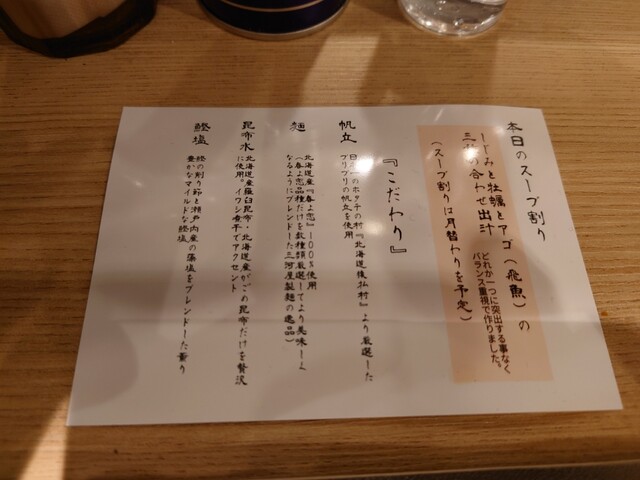 本日のスープ割り
しじみと牡蠣とアゴ(飛魚)の
三種の合わせ出汁
どれか一つに突出する事なく
バランス重視で作りました。
(スープ割りは月替わりを予定)
『こだわり』
帆立
日本一のホタテの村『北海道猿払村』より厳選した
プリプリの帆立を使用
麺
北海道産『春よ恋』100%使用
(春よ恋品種だけを数種類厳選してより美味しく
なるようにブレンドした三河屋製麺の逸品)
昆布水
北海道産羅臼昆布・北海道産がごめ昆布だけを贅沢
に使用。イワシ煮干でアクセント
鰹塩
鰹の削り節と瀬戸内産の藻塩をブレンドした香り
豊かなマイルドな鰹塩